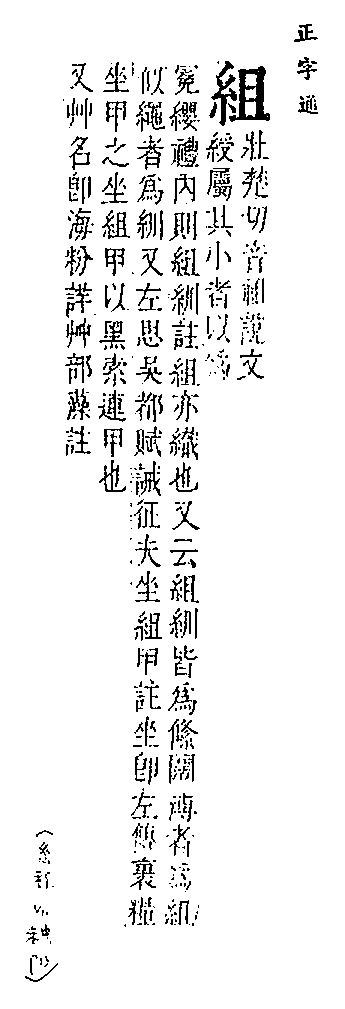 正字通
組
壯楚切音祖說文
綬屬其小者以爲
冕纓禮內則組紃註組亦織也又云組紃皆爲絛闊薄者爲組
似繩者爲紃又左思吳都賦誡征夫坐組甲註坐卽左傳裹糧
坐甲之坐組甲以黑索連甲也
又艸名卽海粉詳艸部藻註